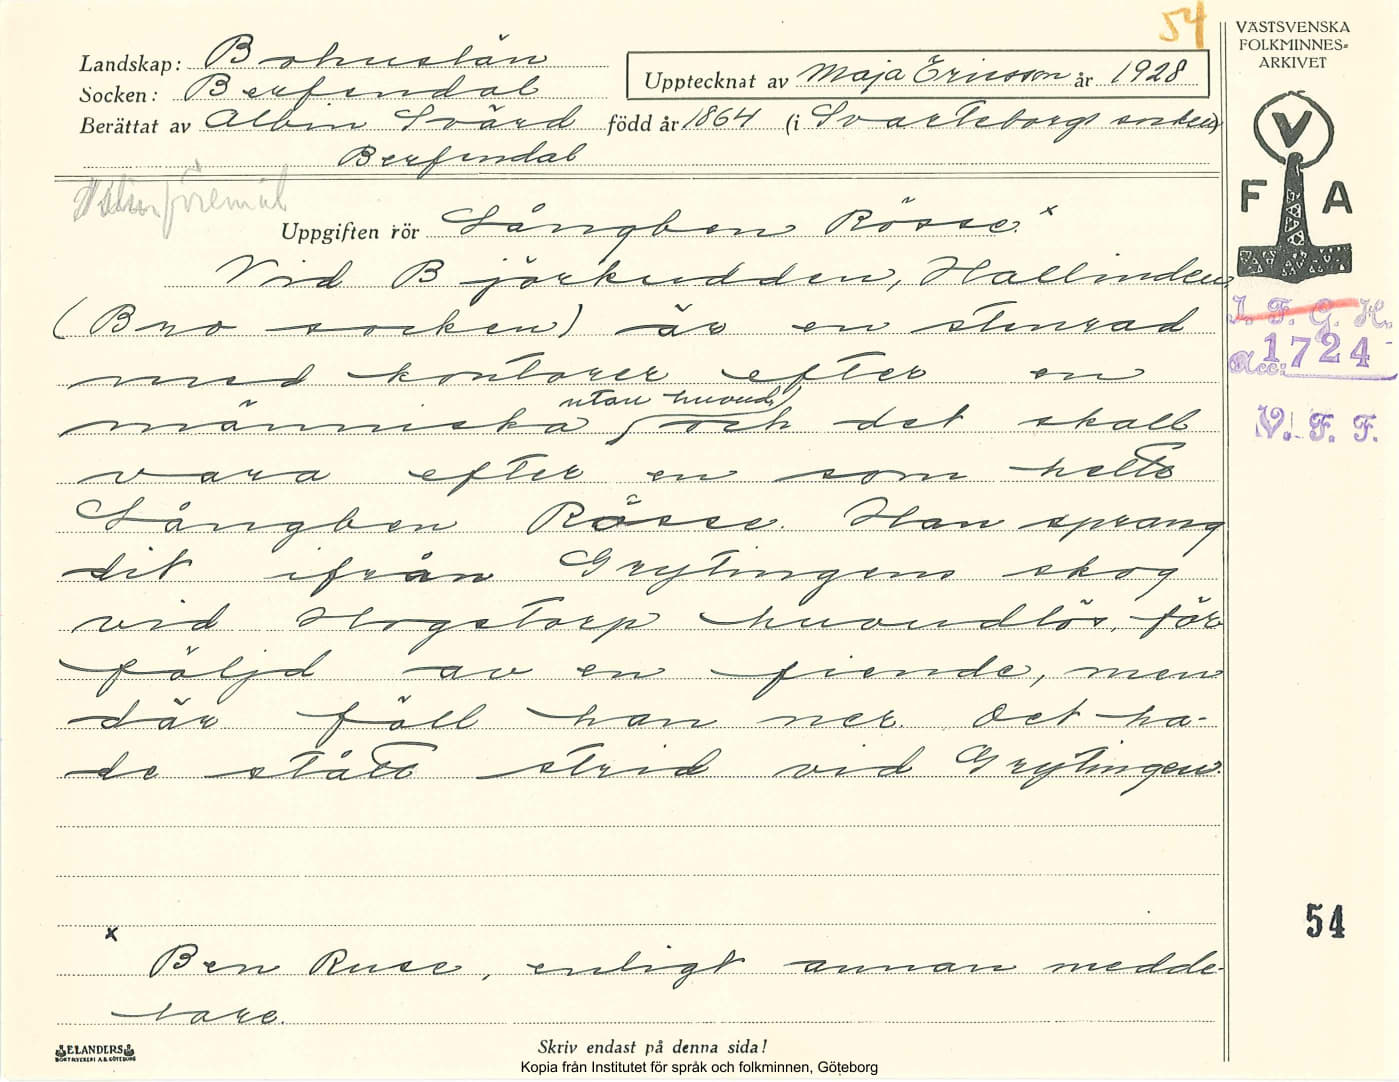 54
VÄSTSVENSKA
FOLKMINNES=
ARKIVET
Landskap: Bohuslän
Socken: Berfendal
Upptecknat av Maja Ericsson år 1928
Berättat av Albin Svärd född år 1864 (i Svarteborgs socken)
Berfendal
V
F A
Uppgiften rör Långben Rösse x
Vid Björkudden, Hallinden
(Bro socken) är en stenrad
med konturer efter en
utan huvud,
människa och det skall
vara efter en som hette
Långben Rösse. Han sprang
dit ifrån Grytingens skog
vid Hogstorp huvudlös, för
följd av en fiende, men
där föll han ner. Det ha-
de stått strid vid Grytingen.
I. F. G. H.
Acc: 1724
V. F. F.
54
x
Ben Ruse, enligt annan medde-
lare.
ELANDERS
BOKTRYCKERI A.B. GÖTEBORG
Skriv endast på denna sida!
Kopia från Institutet för språk och folkminnen, Göteborg